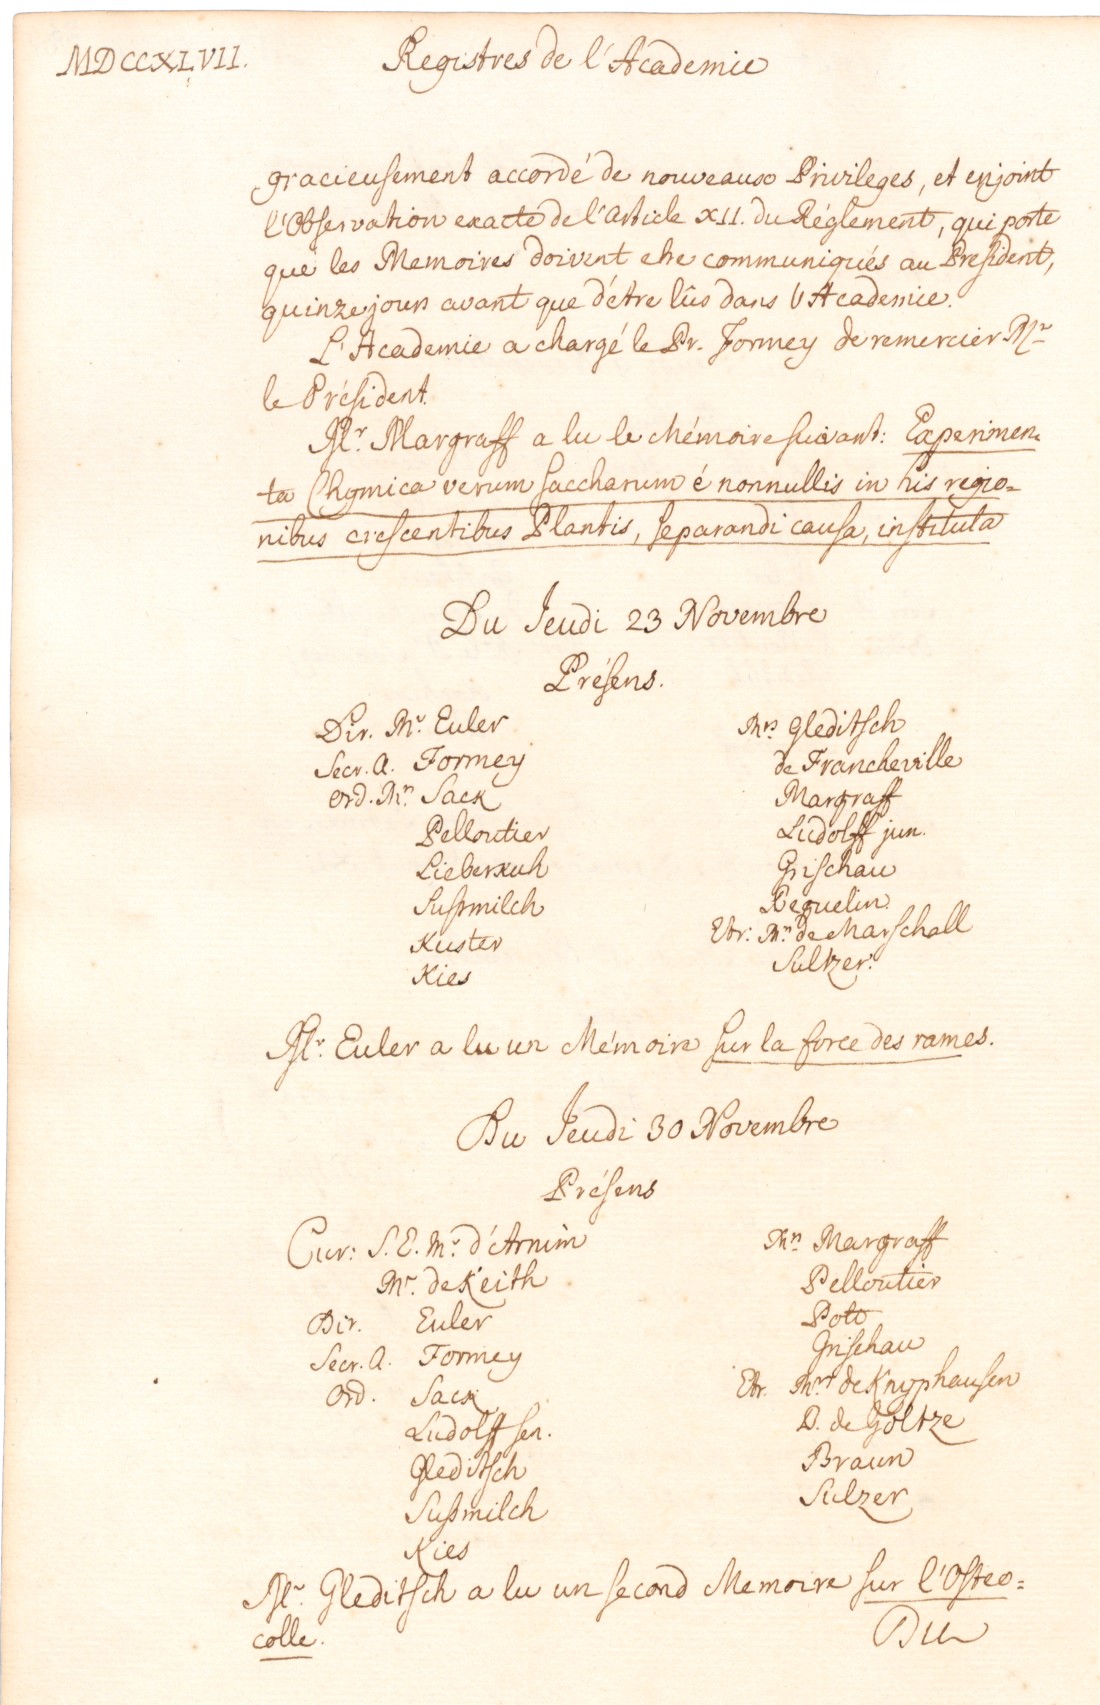 MDCCXLVII.
Registres de l'Academie
gracieusement accordé de nouveaux Privileges, et enjoint
l'Observation exacte de l'Article XII. du Réglement, qui porte
que les Memoires doivent etre communiqués au President,
quinze jours avant que d'être lûs dans l'Academie.
L'Academie a chargé le Pr. Formey de remercier Mr
le Président.
Mr. Margraff a lu le Mémoire suivant: Experimen-
ta Chymica verum saccharum é nonnullis in his regio=
nibus crescentibus Plantis, separandi causa, instituta
Du Jeudi 23 Novembre
Présens.
Dir. Mr. Euler
Secr. A. Formey
Ord. Mrs Sack
Pelloutier
Lieberkuh
Sußmilch
Kuster
Kies
Mrs Gleditsch
de Francheville
Margraff
Ludolff jun.
Grischau
Bequelin.
Etr: Mrs de Marschall
Sultzer.
Mr. Euler a lu un Mémoire sur la force des rames.
Du Jeudi 30 Novembre
Présens
Cur: S. E. Mr. d'Arnim
Mr. de Keith
Dir. Euler
Secr. A. Formey
Ord. Sack
Ludolff sen.
Gleditsch
Sußmilch
Kies
Mrs Margraff
Pelloutier
Pott
Grischau
Etr. Mrs de Knyphausen
D. de Goltze
Braun
Sulzer
Mr. Gleditsch a lu un second Memoire sur l'Osteo=
colle.
Du